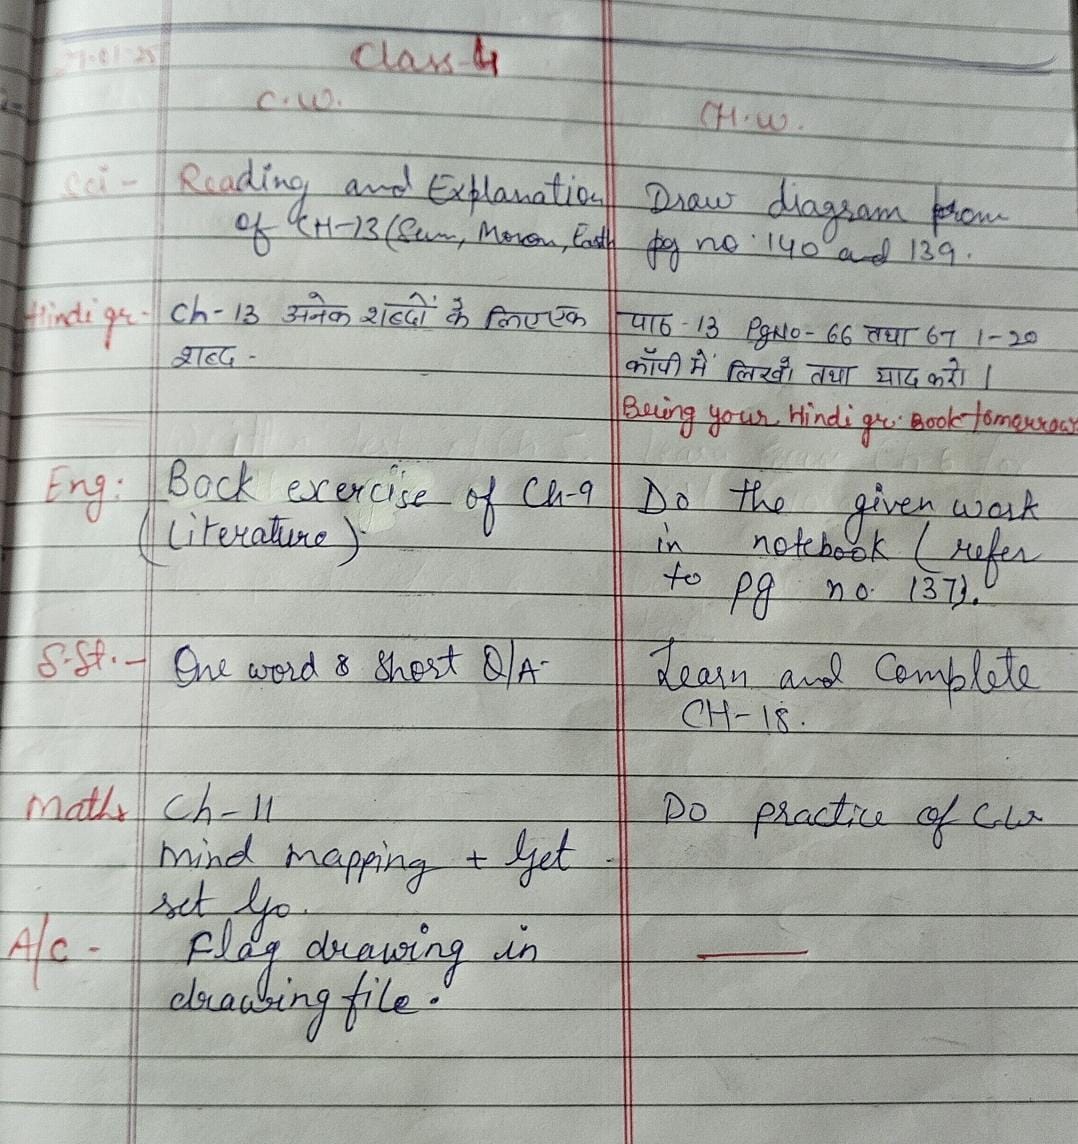 27-01-25
Class-4
C.W.
H.W.
Sci - Reading and Explanation
of CH-13 (Sun, Moron, Earth
Draw diagram from
pg no. 140 and 139.
Hindi gr- Ch-13 अनेक शब्दों के लिए एक
शब्द -
पाठ-13 PgNo-66 तथा 67 1-20
कॉपी में लिखें तथा याद करो।
Being your Hindi gr. Book tomorrow
Eng: Back exercise of Ch-9
(Literature)
Do the given work
in notebook (refer
to pg no. 137).
S.St. - One word & Short Q/A-
Learn and Complete
CH-18.
Maths Ch-11
mind mapping + Get
set Go.
Do practice of C.W
A/C - Flag drawing in
drawing file.